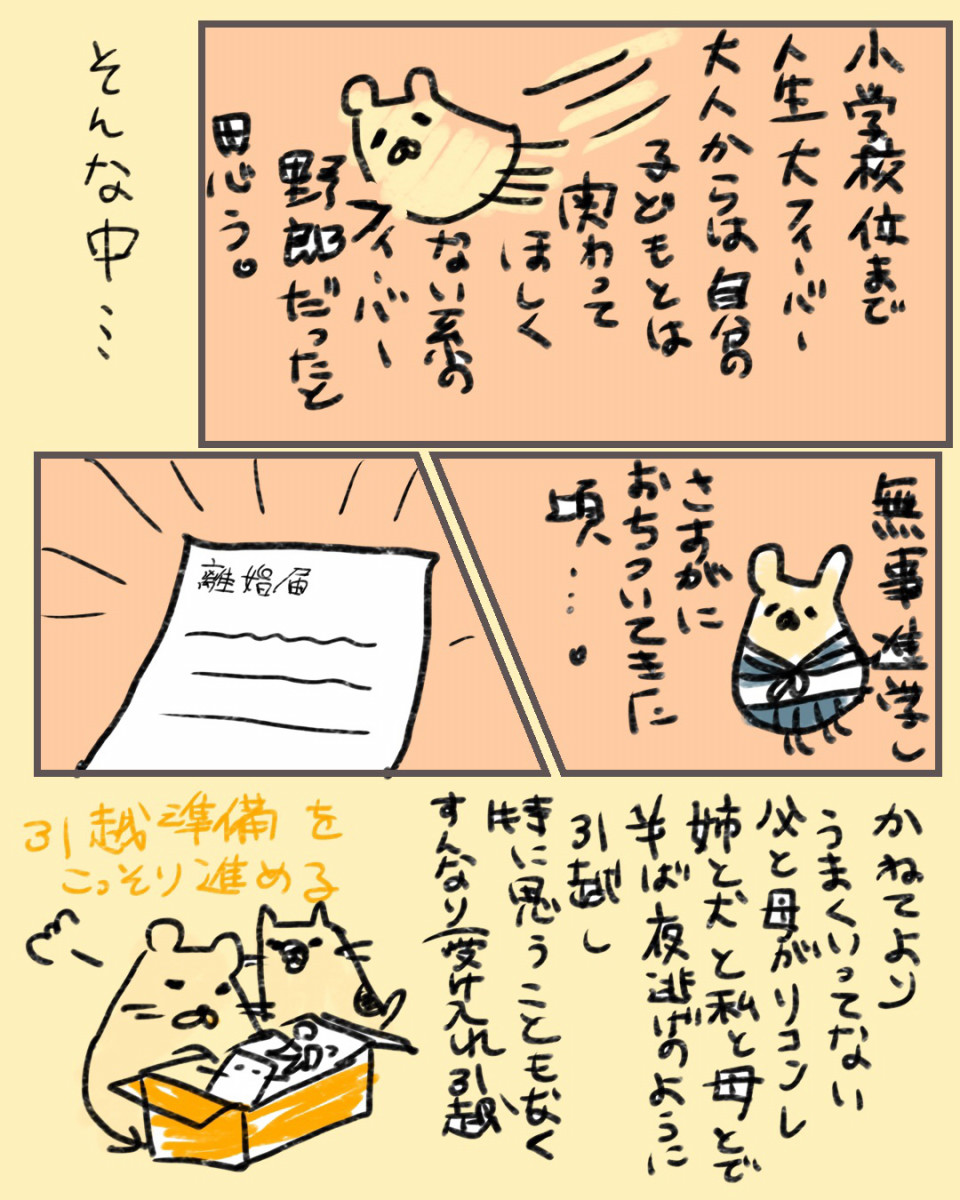 小学校位まで
人生大フィーバー
大人からは自分の
子どもとは
関わって
ほしく
ない系の
フィーバー
野郎だったと
思う。
そんな中…
無事進学し
さすがに
おちついてきた
頃…。
離婚届
かねてより
うまくいってない
父と母がリコンし
姉と犬と私と母とで
半ば夜逃げのように
引越し
特に思うこともなく
すんなり受け入れ引越
引越準備を
こっそり進める